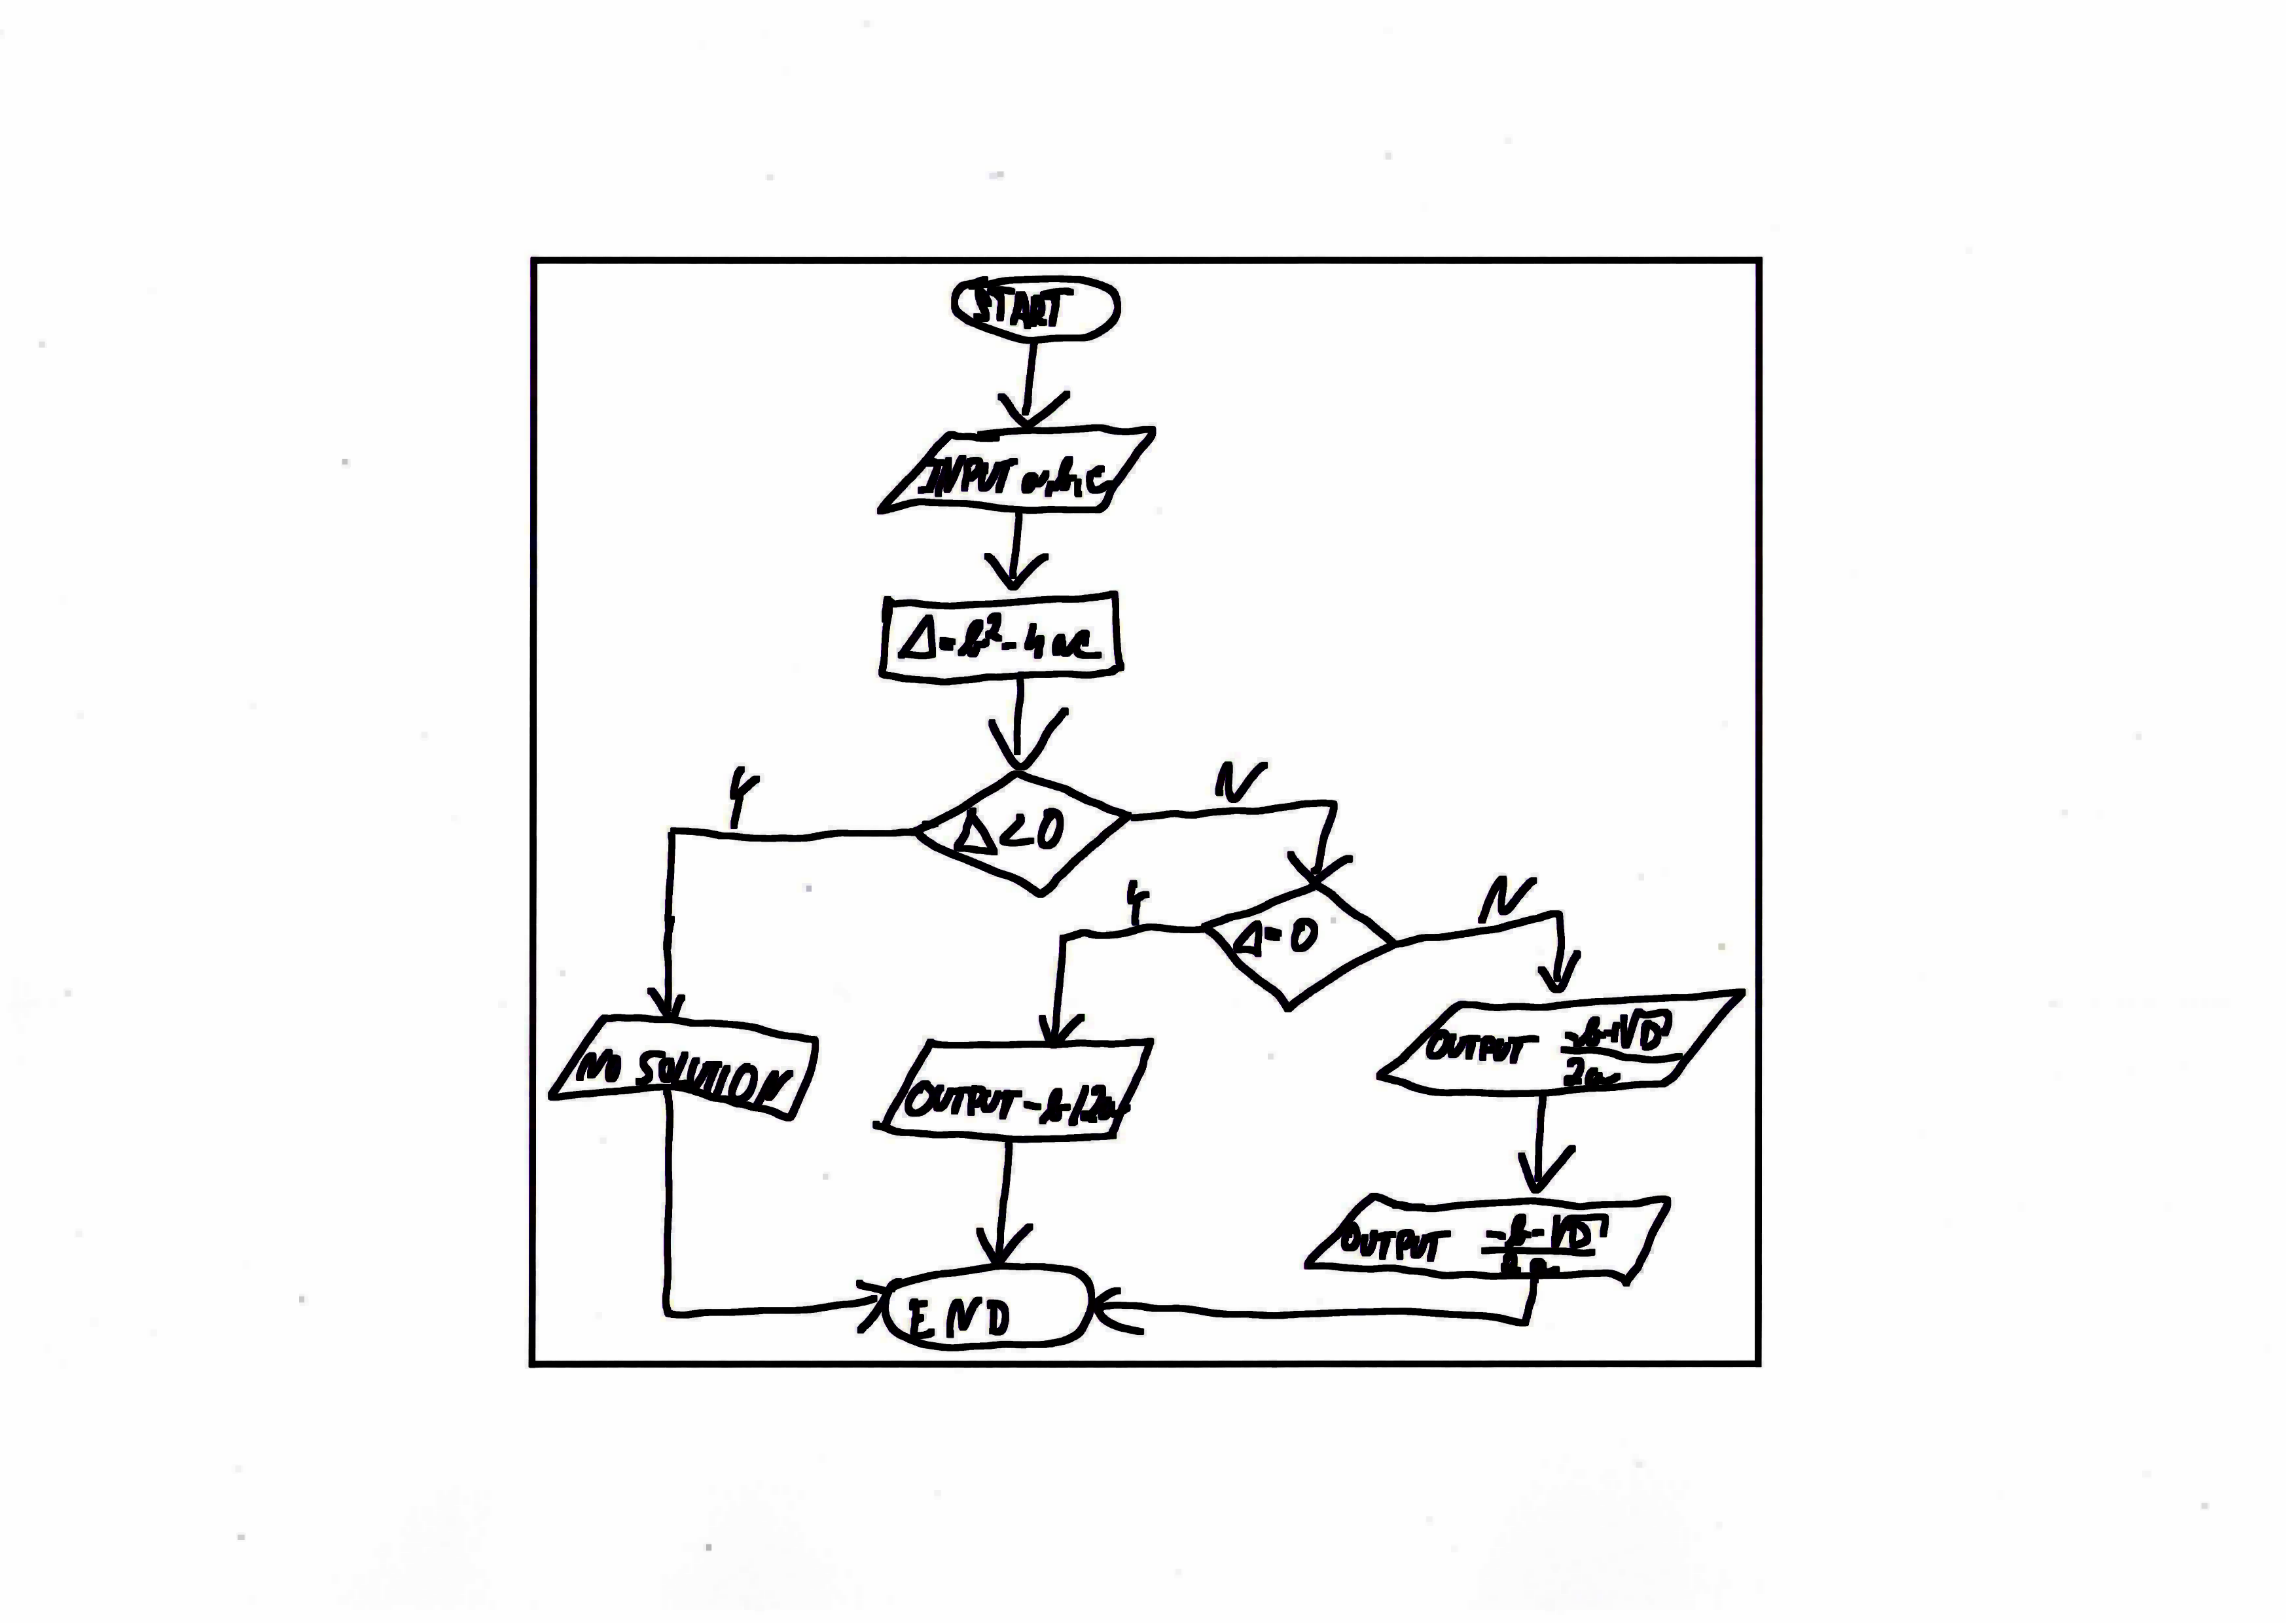 START
INPUT a,b,c
Δ=b²-4ac
Y
N
Δ<0
Y
N
Δ=0
NO SOLUTION
OUTPUT -b/2a
OUTPUT (-b+√D)/2a
OUTPUT (-b-√D)/2a
END